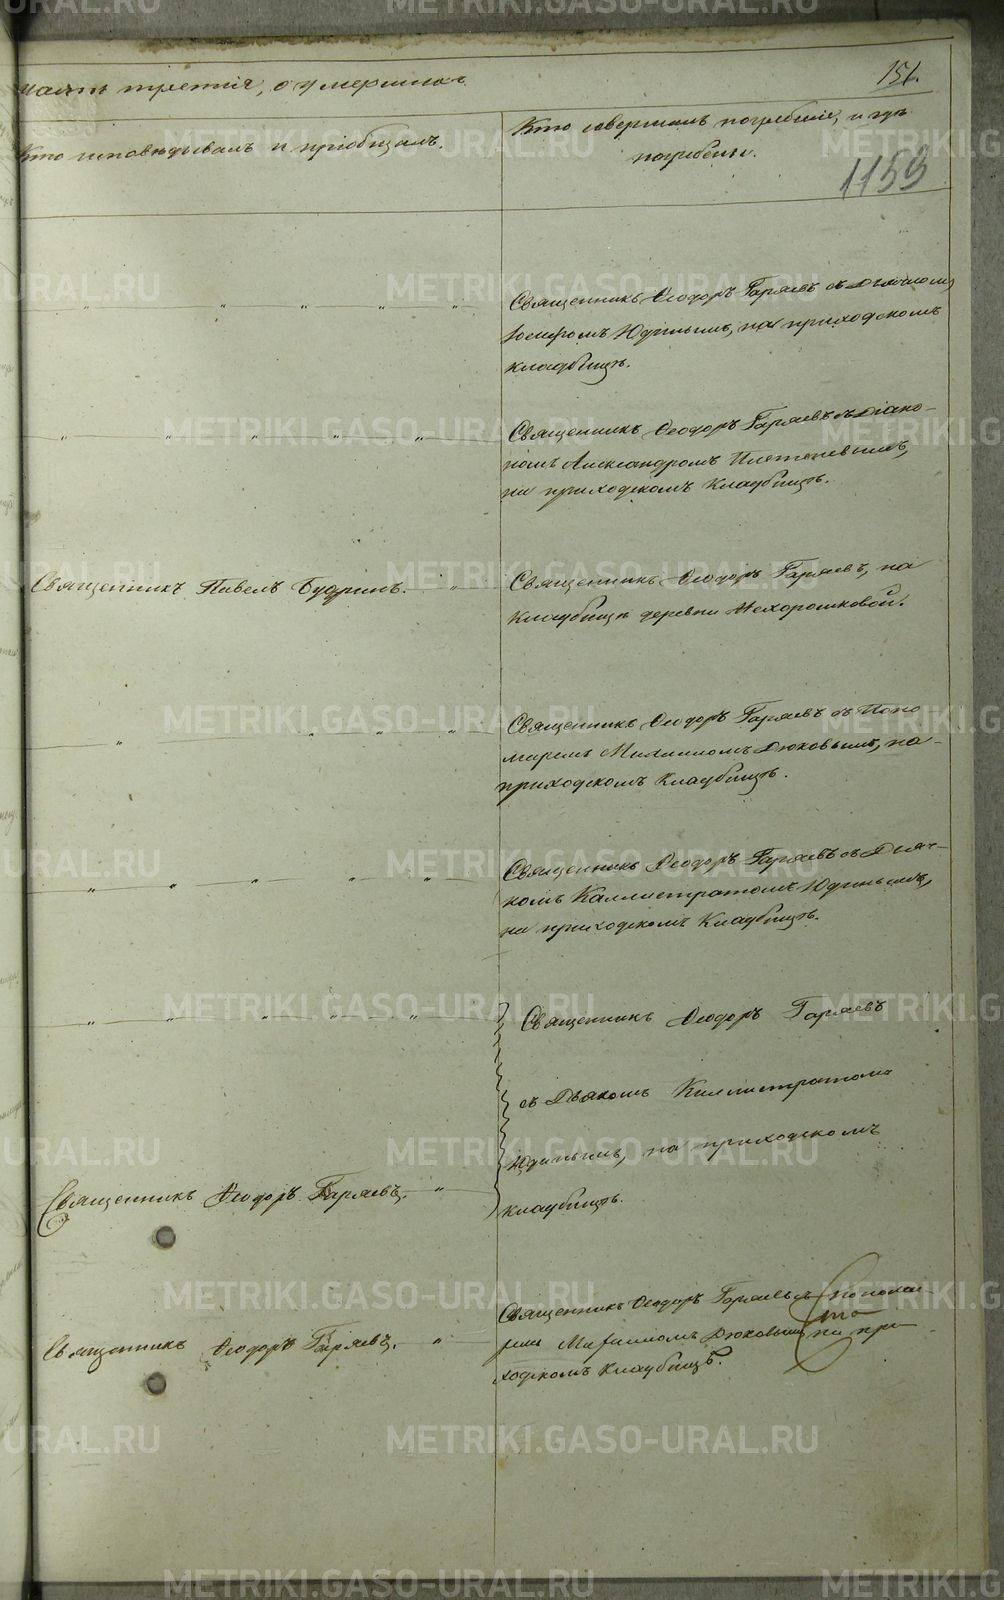 часть третія, о умершихъ. 151.
Кто исповѣдывалъ и пріобщалъ.
Кто совершалъ погребеніе, и гдѣ
погребены.
1159
Священникъ Ѳеодоръ Гаряевъ съ Дьячкомъ
Іосифомъ Юдинымъ, на приходскомъ
кладбищѣ.
Священникъ Ѳеодоръ Гаряевъ съ Діако-
номъ Александромъ
на приходскомъ Кладбищѣ.
Священникъ Павелъ Будринъ.
Священникъ Ѳеодоръ Гаряевъ, на
Кладбищѣ деревни Нехорошковой.
Священникъ Ѳеодоръ Гаряевъ съ Поно
маремъ Михаиломъ Дюковымъ, на
приходскомъ Кладбищѣ.
Священникъ Ѳеодоръ Гаряевъ съ Дьяч-
комъ Каллистратомъ Юдинымъ,
на приходскомъ Кладбищѣ.
Священникъ Ѳеодоръ Гаряевъ
съ Дьякомъ Каллистратомъ
Юдинымъ, на приходскомъ
кладбищѣ.
Священникъ Ѳеодоръ Гаряевъ.
Священникъ Ѳеодоръ Гаряевъ.
Священникъ Ѳеодоръ Гаряевъ съ понома-
ремъ Михаиломъ Дюковымъ на при
ходскомъ кладбищѣ.
METRIKI.GASO-URAL.RU